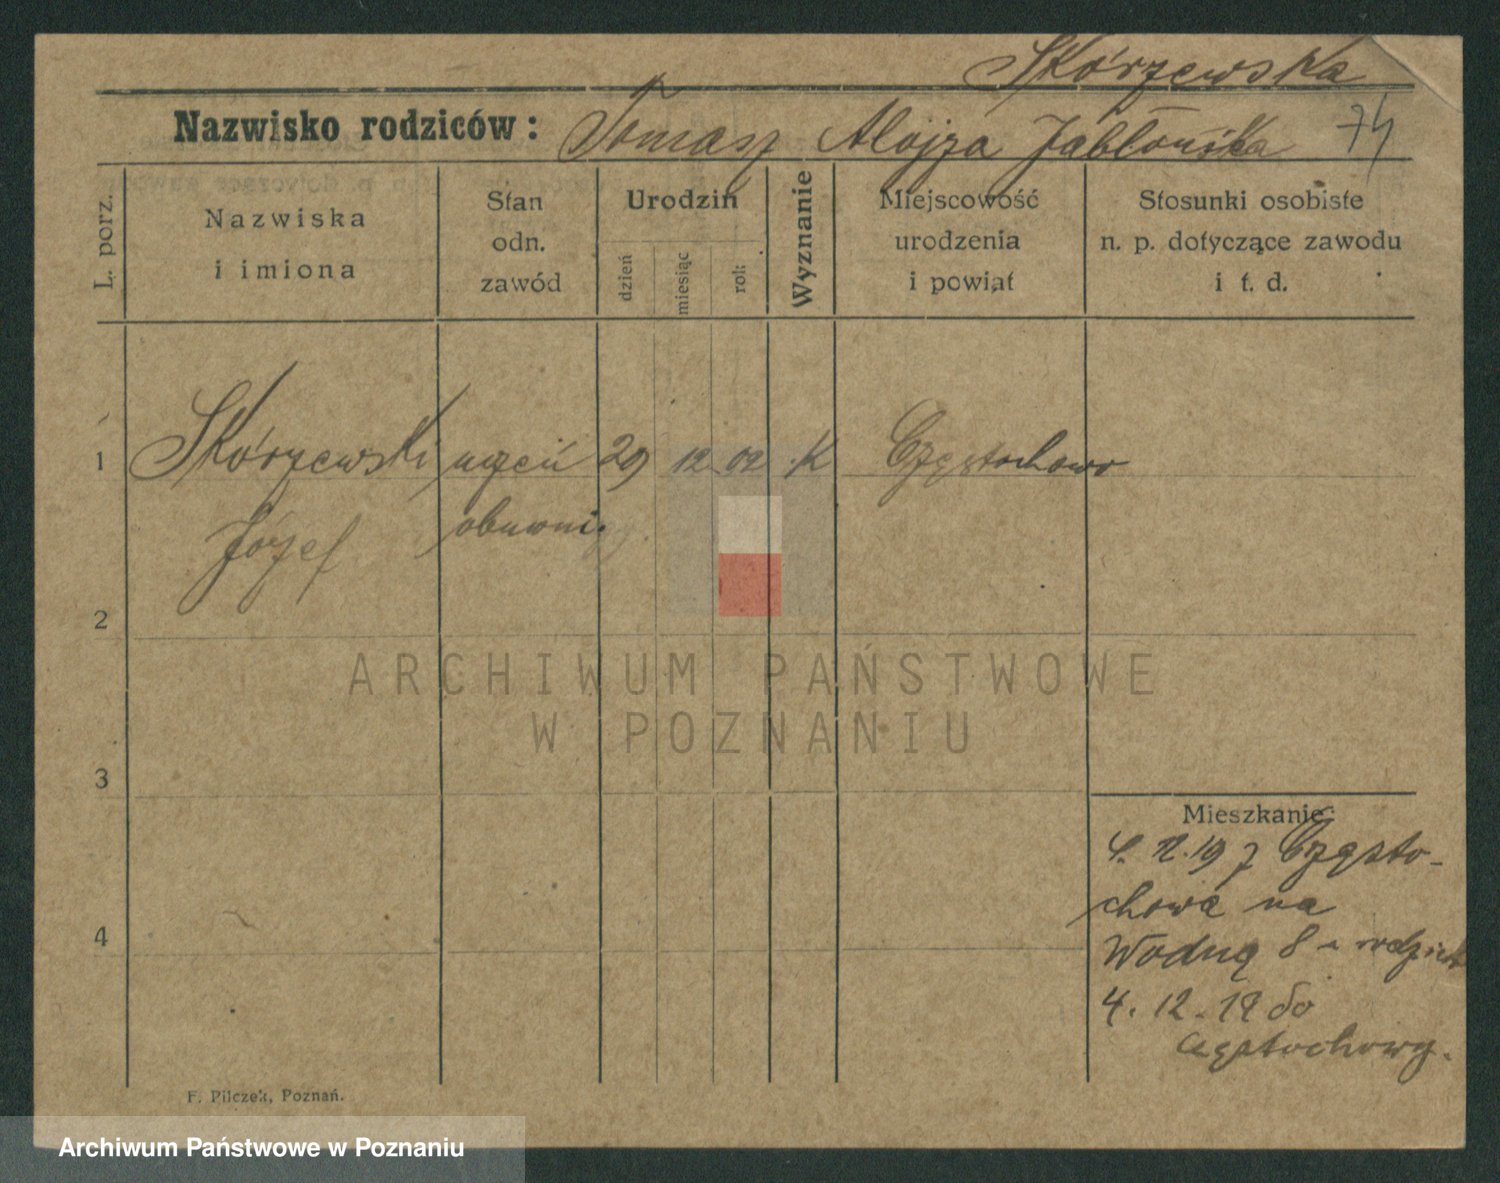 Skórzewska
Nazwisko rodziców: Tomasz Alojza Jabłońska 74
L. porz.
Nazwiska
i imiona
Stan
odn.
zawód
Urodzin
dzień
miesiąc
rok
Wyznanie
Miejscowość
urodzenia
i powiat
Stosunki osobiste
n. p. dotyczące zawodu
i t. d.
1 Skórzewski uczeń 29 12 02 K Częstochowa
Józef obuwni.
2
ARCHIWUM PAŃSTWOWE
W POZNANIU
3
Mieszkanie:
12.19 z Często-
chowa na
4
Wodną 8
4. 12. 19 do
Częstochowy.
F. Pilczek, Poznań.
Archiwum Państwowe w Poznaniu